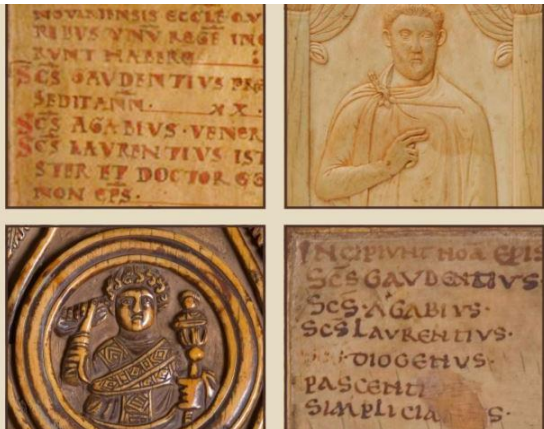 NOVARIENSIS ECCLE QV
RIBUS VNV REGE INC
RUNT HABERE
SCS GAVDENTIVS PRE
SEDIT ANN. XX.
SCS AGABIVS · VENER
SCS LAVRENTIVS IST
STER ET DOCTOR
NON EPS.
INCIPIVNT NOA EPIS
SCS GAVDENTIVS
SCS AGABIVS.
SCS LAVRENTIVS.
DIOGENVS.
PASCENTI
SIMPLICIA S.